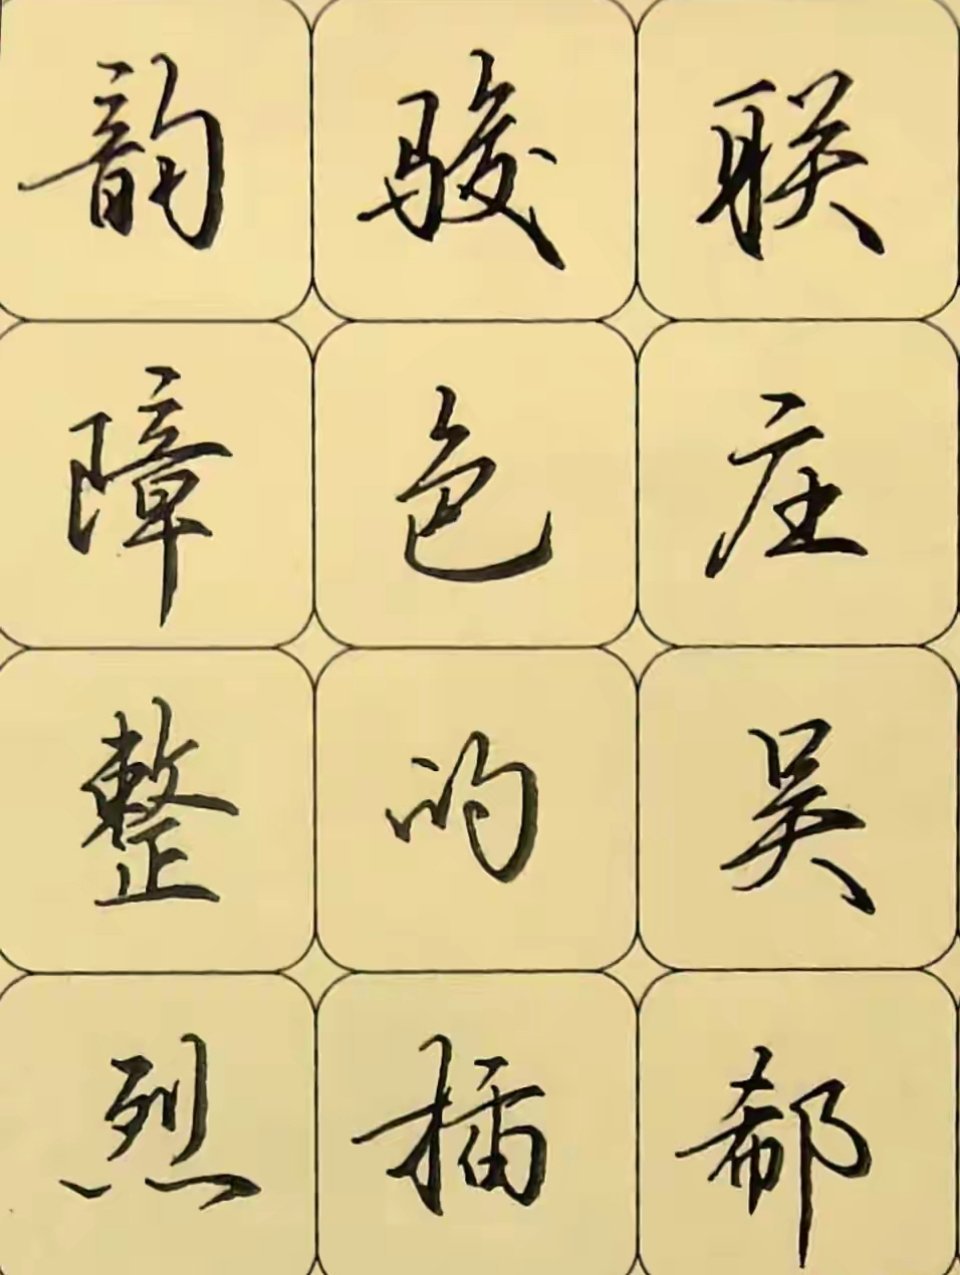 韵骏联
障色庄
整的吴
烈插郗